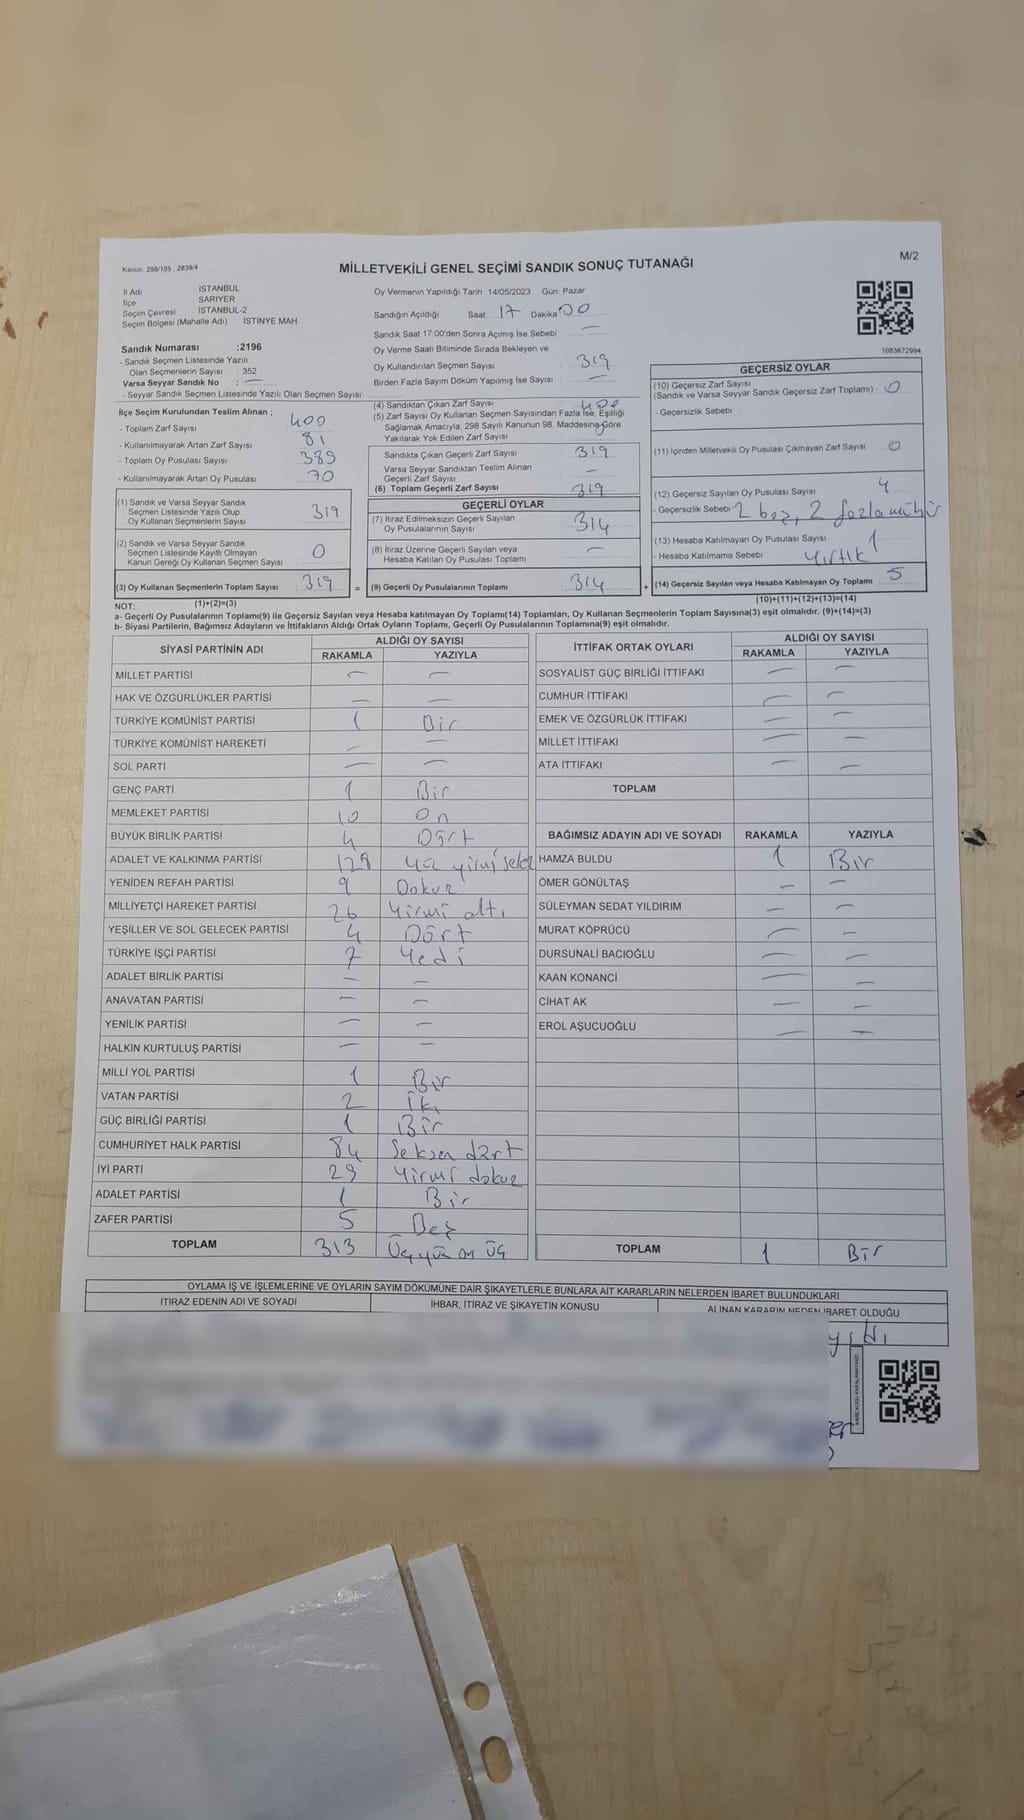 Kanun: 298/105 , 2839/4
MİLLETVEKİLİ GENEL SEÇİMİ SANDIK SONUÇ TUTANAĞI
M/2
İl Adı : İSTANBUL
İlçe SARIYER
Seçim Çevresi İSTANBUL-2
Seçim Bölgesi (Mahalle Adı) : İSTİNYE MAH.
Sandık Numarası :2196
- Sandık Seçmen Listesinde Yazılı
Olan Seçmenlerin Sayısı : 352
Varsa Seyyar Sandık No : —
- Seyyar Sandık Seçmen Listesinde Yazılı Olan Seçmen Sayısı
İlçe Seçim Kurulundan Teslim Alınan ;
- Toplam Zarf Sayısı 400
- Kullanılmayarak Artan Zarf Sayısı 81
- Toplam Oy Pusulası Sayısı 389
- Kullanılmayarak Artan Oy Pusulası 70
(1) Sandık ve Varsa Seyyar Sandık
Seçmen Listesinde Yazılı Olup
Oy Kullanan Seçmenlerin Sayısı 319
(2) Sandık ve Varsa Seyyar Sandık
Seçmen Listesinde Kayıtlı Olmayan
Kanun Gereği Oy Kullanan Seçmen Sayısı 0
(3) Oy Kullanan Seçmenlerin Toplam Sayısı 319 =
(1)+(2)=(3)
Oy Vermenin Yapıldığı Tarih :14/05/2023 Gün: Pazar
Sandığın Açıldığı Saat 17 Dakika 00
Sandık Saat 17:00'den Sonra Açımış İse Sebebi : —
Oy Verme Saati Bitiminde Sırada Bekleyen ve
Oy Kullandırılan Seçmen Sayısı 319
Birden Fazla Sayım Döküm Yapılmış İse Sayısı : —
(4) Sandıktan Çıkan Zarf Sayısı
(5) Zarf Sayısı Oy Kullanan Seçmen Sayısından Fazla İse, Eşitliği
Sağlamak Amacıyla; 298 Sayılı Kanunun 98. Maddesine Göre
Yakılarak Yok Edilen Zarf Sayısı
Sandıkta Çıkan Geçerli Zarf Sayısı : 319
Varsa Seyyar Sandıktan Teslim Alınan
Geçerli Zarf Sayısı —
(6) Toplam Geçerli Zarf Sayısı 319
GEÇERLİ OYLAR
(7) İtiraz Edilmeksizin Geçerli Sayılan
Oy Pusulalarının Sayısı 314
(8) İtiraz Üzerine Geçerli Sayılan veya
Hesaba Katılan Oy Pusulası Toplamı —
(9) Geçerli Oy Pusulalarının Toplamı 314 +
1083672994
GEÇERSİZ OYLAR
(10) Geçersiz Zarf Sayısı
(Sandık ve Varsa Seyyar Sandık Geçersiz Zarf Toplamı) : 0
- Geçersizlik Sebebi :
(11) İçinden Milletvekili Oy Pusulası Çıkmayan Zarf Sayısı : 0
(12) Geçersiz Sayılan Oy Pusulası Sayısı 4
- Geçersizlik Sebebi 2 boş, 2 fazla mühür
(13) Hesaba Katılmayan Oy Pusulası Sayısı 1
- Hesaba Katılmama Sebebi : Yırtık
(14) Geçersiz Sayılan veya Hesaba Katılmayan Oy Toplamı : 5
(10)+(11)+(12)+(13)=(14)
NOT:
a- Geçerli Oy Pusulalarının Toplamı(9) ile Geçersiz Sayılan veya Hesaba katılmayan Oy Toplamı(14) Toplamları, Oy Kullanan Seçmenlerin Toplam Sayısına(3) eşit olmalıdır. (9)+(14)=(3)
b- Siyasi Partilerin, Bağımsız Adayların ve İttifakların Aldığı Ortak Oyların Toplamı, Geçerli Oy Pusulalarının Toplamına(9) eşit olmalıdır.
SİYASİ PARTİNİN ADI ALDIĞI OY SAYISI
RAKAMLA YAZIYLA
MİLLET PARTİSİ — —
HAK VE ÖZGÜRLÜKLER PARTİSİ — —
TÜRKİYE KOMÜNİST PARTİSİ 1 Bir
TÜRKİYE KOMÜNİST HAREKETİ — —
SOL PARTİ — —
GENÇ PARTİ 1 Bir
MEMLEKET PARTİSİ 10 On
BÜYÜK BİRLİK PARTİSİ 4 Dört
ADALET VE KALKINMA PARTİSİ 128 yirmi sekiz
YENİDEN REFAH PARTİSİ 9 Dokuz
MİLLİYETÇİ HAREKET PARTİSİ 26 Yirmi altı
YEŞİLLER VE SOL GELECEK PARTİSİ 4 Dört
TÜRKİYE İŞÇİ PARTİSİ 7 Yedi
ADALET BİRLİK PARTİSİ — —
ANAVATAN PARTİSİ — —
YENİLİK PARTİSİ — —
HALKIN KURTULUŞ PARTİSİ — —
MİLLİ YOL PARTİSİ 1 Bir
VATAN PARTİSİ 2 İki
GÜÇ BİRLİĞİ PARTİSİ 1 Bir
CUMHURİYET HALK PARTİSİ 84 Seksen dört
İYİ PARTİ 29 Yirmi dokuz
ADALET PARTİSİ 1 Bir
ZAFER PARTİSİ 5 Beş
TOPLAM 313 Üç yüz on üç
İTTİFAK ORTAK OYLARI ALDIĞI OY SAYISI
RAKAMLA YAZIYLA
SOSYALİST GÜÇ BİRLİĞİ İTTİFAKI — —
CUMHUR İTTİFAKI — —
EMEK VE ÖZGÜRLÜK İTTİFAKI — —
MİLLET İTTİFAKI — —
ATA İTTİFAKI — —
TOPLAM
BAĞIMSIZ ADAYIN ADI VE SOYADI RAKAMLA YAZIYLA
HAMZA BULDU 1 Bir
ÖMER GÖNÜLTAŞ — —
SÜLEYMAN SEDAT YILDIRIM — —
MURAT KÖPRÜCÜ — —
DURSUNALİ BACIOĞLU — —
KAAN KONANCİ — —
CİHAT AK — —
EROL AŞUCUOĞLU — —
TOPLAM 1 Bir
OYLAMA İŞ VE İŞLEMLERİNE VE OYLARIN SAYIM DÖKÜMÜNE DAİR ŞİKAYETLERLE BUNLARA AİT KARARLARIN NELERDEN İBARET BULUNDUKLARI
İTİRAZ EDENİN ADI VE SOYADI İHBAR, İTİRAZ VE ŞİKAYETİN KONUSU ALINAN KARARIN NEDEN İBARET OLDUĞU